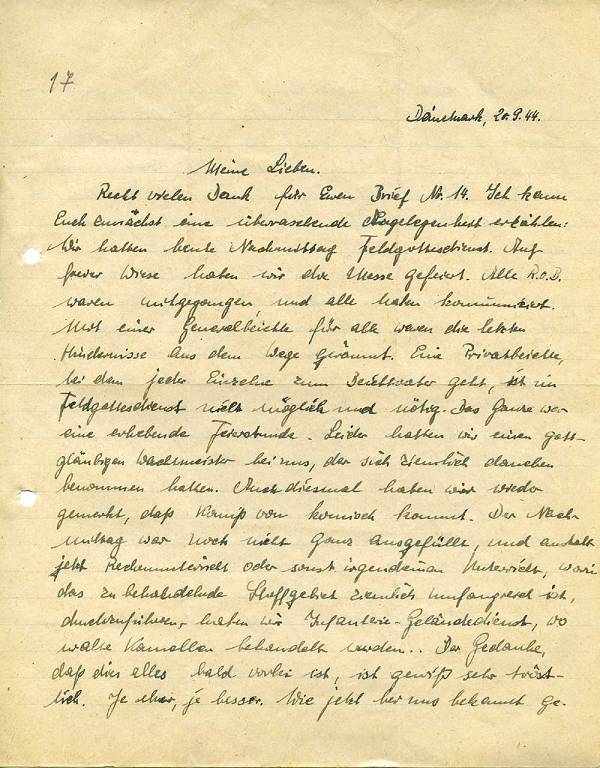 17
Dänemark, 20.9.44.
Meine Lieben.
Recht vielen Dank für Euren Brief Nr. 14. Ich kann
Euch zunächst eine überraschende Angelegenheit erzählen:
Wir hatten heute Nachmittag Feldgottesdienst. Auf
freier Wiese haben wir die Messe gefeiert. Alle R.O.B.
waren mitgegangen, und alle haben kommuniziert.
Mit einer Generalbeichte für alle waren die letzten
Hindernisse aus dem Wege geräumt. Eine Privatbeichte,
bei dem jeder Einzelne zum Beichtvater geht, ist im
Feldgottesdienst nicht möglich und nötig. Das Ganze war
eine erhebende Feierstunde. Leider hatten wir einen gott-
gläubigen Wachtmeister bei uns, der sich ziemlich daneben
benommen hatten. Auch diesmal haben wir wieder
gemerkt, daß Komiß von komisch kommt. Der Nach-
mittag war noch nicht ganz ausgefüllt, und anstatt
jetzt Rechenunterricht oder sonst irgendeinen Unterricht, worin
das zu behandelnde Stoffgebiet ziemlich umfangreich ist,
durchzuführen, hatten wir Infanterie-Geländedienst, wo
Kamellen behandelt wurden.. Der Gedanke,
daß dies alles bald vorbei ist, ist gewiß sehr tröst-
lich. Je eher, je besser. Wie jetzt bei uns bekannt ge-